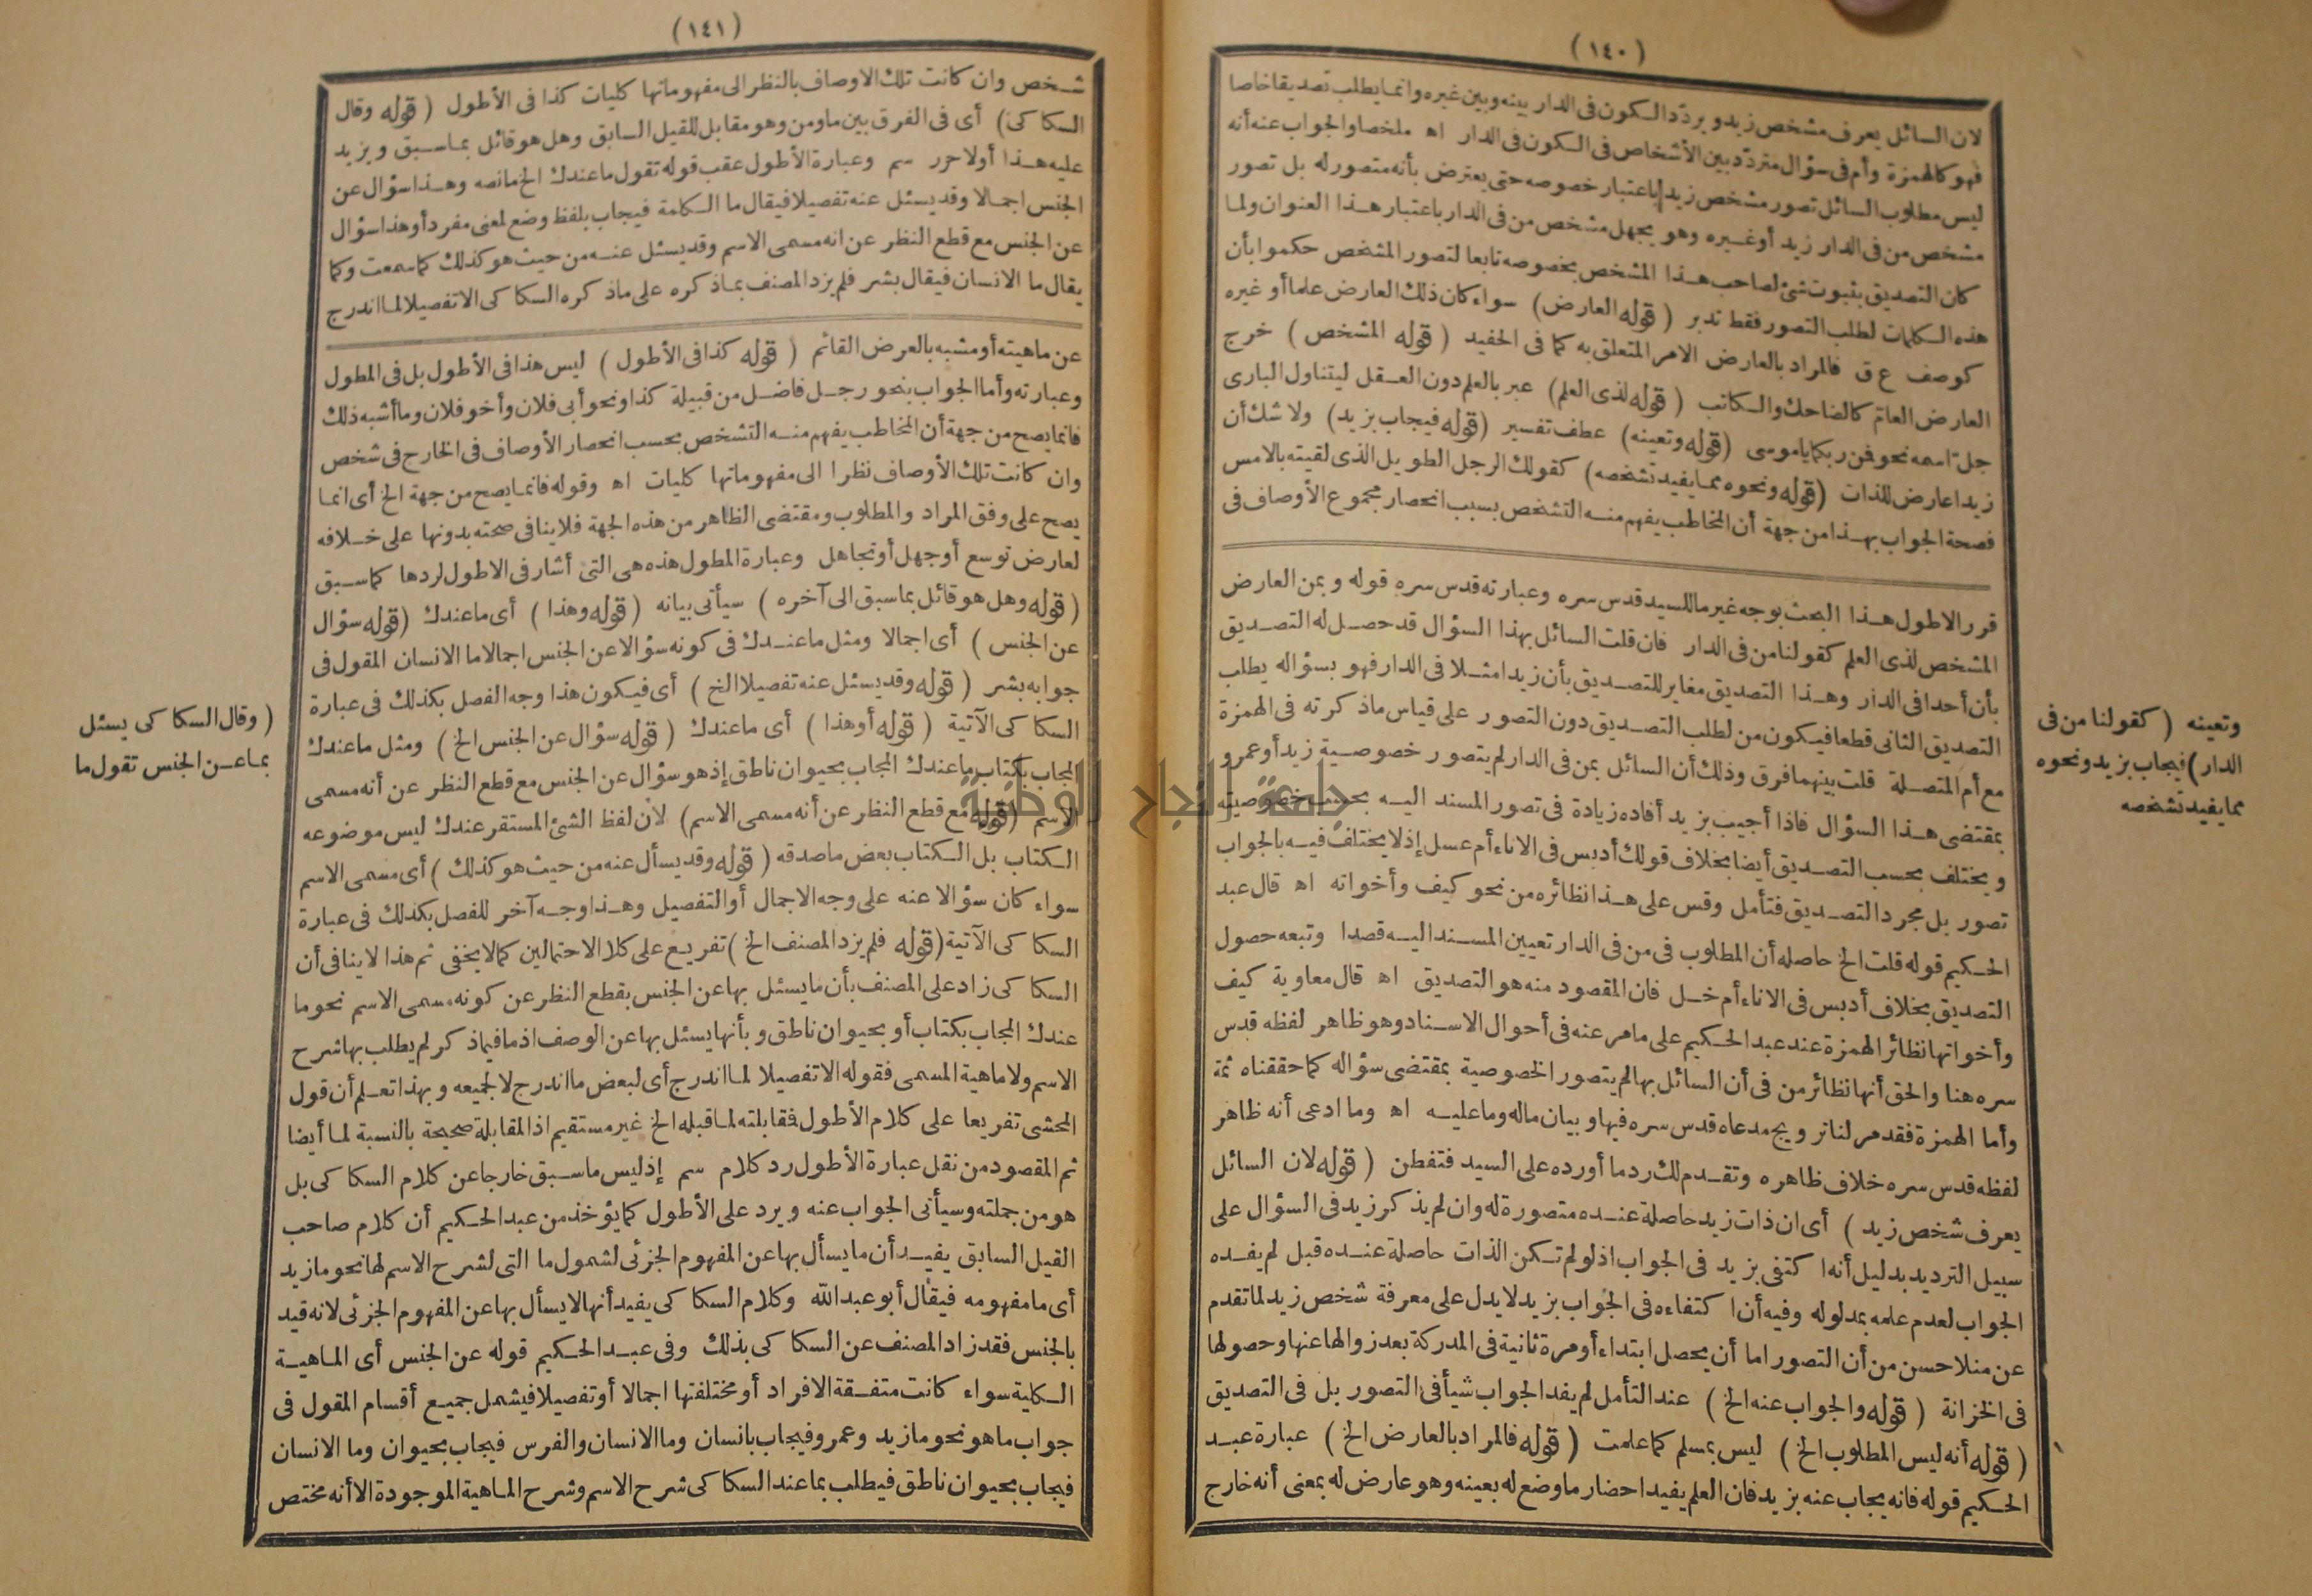 (١٤٠)
لان السائل يعرف مشخص زيد و يردّد الكون فى الدار بينه وبين غيره وانما يطلب تصديقا خاصا
فهو كالهمزة وأم فى سؤال متردّد بين الأشخاص فى الكون فى الدار اه ملخصا والجواب عنه أنه
ليس مطلوب السائل تصور مشخص زيد باعتبار خصوصه حتى يعترض بأنه متصور له بل تصور
مشخص من فى الدار زيد أو غيره وهو يجهل مشخص من فى الدار باعتبار هذا العنوان ولما
كان التصديق بثبوت شئ لصاحب هذا المشخص بخصوصه تابعا لتصور المشخص حكموا بأن
هذه الكلمات لطلب التصور فقط تدبر ( قوله العارض ) سواء كان ذلك العارض علما أو غيره
كوصف ع ق فالمراد بالعارض الامر المتعلق به كما فى الحفيد ( قوله المشخص ) خرج
العارض العام كالضاحك والكاتب ( قوله لذى العلم ) عبر بالعلم دون العقل ليتناول البارى
جل اسمه نحو فمن ربكما يا موسى ( قوله وتعينه ) عطف تفسير ( قوله فيجاب بزيد ) ولا شك أن
زيدا عارض للذات ( قوله ونحوه مما يفيد تشخصه ) كقولك الرجل الطويل الذى لقيته بالامس
فصحة الجواب بهذا من جهة أن المخاطب يفهم منه التشخص بسبب انحصار مجموع الأوصاف فى
قرر الاطول هذا البحث بوجه غير ما للسيد قدس سره وعبارته قدس سره قوله و بمن العارض
المشخص لذى العلم كقولنا من فى الدار فان قلت السائل بهذا السؤال قد حصل له التصديق
بأن أحدا فى الدار وهذا التصديق مغاير للتصديق بأن زيدا مثلا فى الدار فهو بسؤاله يطلب
التصديق الثانى قطعا فيكون من لطلب التصديق دون التصور على قياس ما ذكرته فى الهمزة
مع أم المتصلة قلت بينهما فرق وذلك أن السائل بمن فى الدار لم يتصور خصوصية زيد أو عمرو
بمقتضى هذا السؤال فاذا أجيب بزيد أفاده زيادة فى تصور المسند اليه بحسب خصوصيته
و يختلف بحسب التصديق أيضا بخلاف قولك أدبس فى الاناء أم عسل إذ لا يختلف فيه بالجواب
تصور بل مجرد التصديق فتأمل وقس على هذا نظائره من نحو كيف وأخواته اه قال عبد
الحكيم قوله قلت الخ حاصله أن المطلوب فى من فى الدار تعيين المسند اليه قصدا وتبعه حصول
التصديق بخلاف أدبس فى الاناء أم خل فان المقصود منه هو التصديق اه قال معاوية كيف
وأخواتها نظائر الهمزة عند عبد الحكيم على ما مر عنه فى أحوال الاسناد وهو ظاهر لفظه قدس
سره هنا والحق أنها نظائر من فى أن السائل بها لم يتصور الخصوصية بمقتضى سؤاله كما حققناه ثمة
وأما الهمزة فقد مر لنا ترويج مدعاه قدس سره فيها و بيان ماله وما عليه اه وما ادعى أنه ظاهر
لفظه قدس سره خلاف ظاهره وتقدم لك رد ما أورده على السيد فتفطن ( قوله لان السائل
يعرف شخص زيد ) أى ان ذات زيد حاصلة عنده متصورة له وان لم يذكر زيد فى السؤال على
سبيل الترديد بدليل أنه اكتفى بزيد فى الجواب اذ لو لم تكن الذات حاصلة عنده قبل لم يفده
الجواب لعدم علمه بمدلوله وفيه أن اكتفاءه فى الجواب بزيد لا يدل على معرفة شخص زيد لما تقدم
عن منلا حسن من أن التصور اما أن يحصل ابتداء أو مرة ثانية فى المدركة بعد زوالها عنها وحصولها
فى الخزانة ( قوله والجواب عنه الخ ) عند التأمل لم يفد الجواب شيأ فى التصور بل فى التصديق
( قوله أنه ليس المطلوب الخ ) ليس بمسلم كما علمت ( قوله فالمراد بالعارض الخ ) عبارة عبد
الحكيم قوله فانه يجاب عنه بزيد فان العلم يفيد احضار ما وضع له بعينه وهو عارض له بمعنى أنه خارج
وتعينه ( كقولنا من فى
الدار ) فيجاب بزيد ونحوه
مما يفيد تشخصه
(١٤١)
شخص وان كانت تلك الاوصاف بالنظر الى مفهوماتها كليات كذا فى الأطول ( قوله وقال
السكاكى ) أى فى الفرق بين ما ومن وهو مقابل للقيل السابق وهل هو قائل بما سبق ويزيد
عليه هذا أولا حرر سم وعبارة الأطول عقب قوله تقول ما عندك الخ ما نصه وهذا سؤال عن
الجنس اجمالا وقد يسئل عنه تفصيلا فيقال ما الكلمة فيجاب بلفظ وضع لمعنى مفرد أو هذا سؤال
عن الجنس مع قطع النظر عن انه مسمى الاسم وقد يسئل عنه من حيث هو كذلك كما سمعت وكما
يقال ما الانسان فيقال بشر فلم يزد المصنف بما ذكره على ما ذكره السكاكى الا تفصيلا لما اندرج
عن ماهيته أو مشبه بالعرض القائم ( قوله كذا فى الأطول ) ليس هذا فى الأطول بل فى المطول
وعبارته وأما الجواب بنحو رجل فاضل من قبيلة كذا ونحو أبى فلان وأخو فلان وما أشبه ذلك
فانما يصح من جهة أن المخاطب يفهم منه التشخص بحسب انحصار الأوصاف فى الخارج فى شخص
وان كانت تلك الأوصاف نظرا الى مفهوماتها كليات اه وقوله فانما يصح من جهة الخ أى انما
يصح على وفق المراد والمطلوب ومقتضى الظاهر من هذه الجهة فلا ينافى صحته بدونها على خلافه
لعارض توسع أو جهل أو تجاهل وعبارة المطول هذه هى التى أشار فى الاطول لردها كما سبق
( قوله وهل هو قائل بما سبق الى آخره ) سيأتى بيانه ( قوله وهذا ) أى ما عندك ( قوله سؤال
عن الجنس ) أى اجمالا ومثل ما عندك فى كونه سؤالا عن الجنس اجمالا ما الانسان المقول فى
جوابه بشر ( قوله وقد يسئل عنه تفصيلا الخ ) أى فيكون هذا وجه الفصل بكذلك فى عبارة
السكاكى الآتية ( قوله أو هذا ) أى ما عندك ( قوله سؤال عن الجنس الخ ) ومثل ما عندك
المجاب بكتاب ما عندك المجاب بحيوان ناطق إذ هو سؤال عن الجنس مع قطع النظر عن أنه مسمى
الاسم ( قوله مع قطع النظر عن أنه مسمى الاسم ) لأن لفظ الشئ المستقر عندك ليس موضوعه
الكتاب بل الكتاب بعض ما صدقه ( قوله وقد يسأل عنه من حيث هو كذلك ) أى مسمى الاسم
سواء كان سؤالا عنه على وجه الاجمال أو التفصيل وهذا وجه آخر للفصل بكذلك فى عبارة
السكاكى الآتية ( قوله فلم يزد المصنف الخ ) تفريع على كلا الاحتمالين كما لا يخفى ثم هذا لا ينافى أن
السكاكى زاد على المصنف بأن ما يسئل بها عن الجنس بقطع النظر عن كونه مسمى الاسم نحو ما
عندك المجاب بكتاب أو بحيوان ناطق و بأنها يسئل بها عن الوصف اذ ما فيما ذكر لم يطلب بها شرح
الاسم ولا ماهية المسمى فقوله الا تفصيلا لما اندرج أى لبعض ما اندرج لا لجميعه و بهذا تعلم أن قول
المحشى تفريعا على كلام الأطول فقابلته لما قبله الخ غير مستقيم اذ المقابلة صحيحة بالنسبة لما أيضا
ثم المقصود من نقل عبارة الأطول رد كلام سم إذ ليس ما سبق خارجا عن كلام السكاكى بل
هو من جملته وسيأتى الجواب عنه و يرد على الأطول كما يؤخذ من عبد الحكيم أن كلام صاحب
القيل السابق يفيد أن ما يسأل بها عن المفهوم الجزئى لشمول ما التى لشرح الاسم لها نحو ما زيد
أى ما مفهومه فيقال أبو عبد الله وكلام السكاكى يفيد أنها لا يسأل بها عن المفهوم الجزئى لانه قيد
بالجنس فقد زاد المصنف عن السكاكى بذلك وفى عبد الحكيم قوله عن الجنس أى الماهية
الكلية سواء كانت متفقة الافراد أو مختلفتها اجمالا أو تفصيلا فيشمل جميع أقسام المقول فى
جواب ما هو نحو ما زيد وعمرو فيجاب بانسان وما الانسان والفرس فيجاب بحيوان وما الانسان
فيجاب بحيوان ناطق فيطلب بما عند السكاكى شرح الاسم وشرح الماهية الموجودة الا أنه مختص
( وقال السكاكى يسئل
بما عن الجنس تقول ما
جامعة النجاح الوطنية